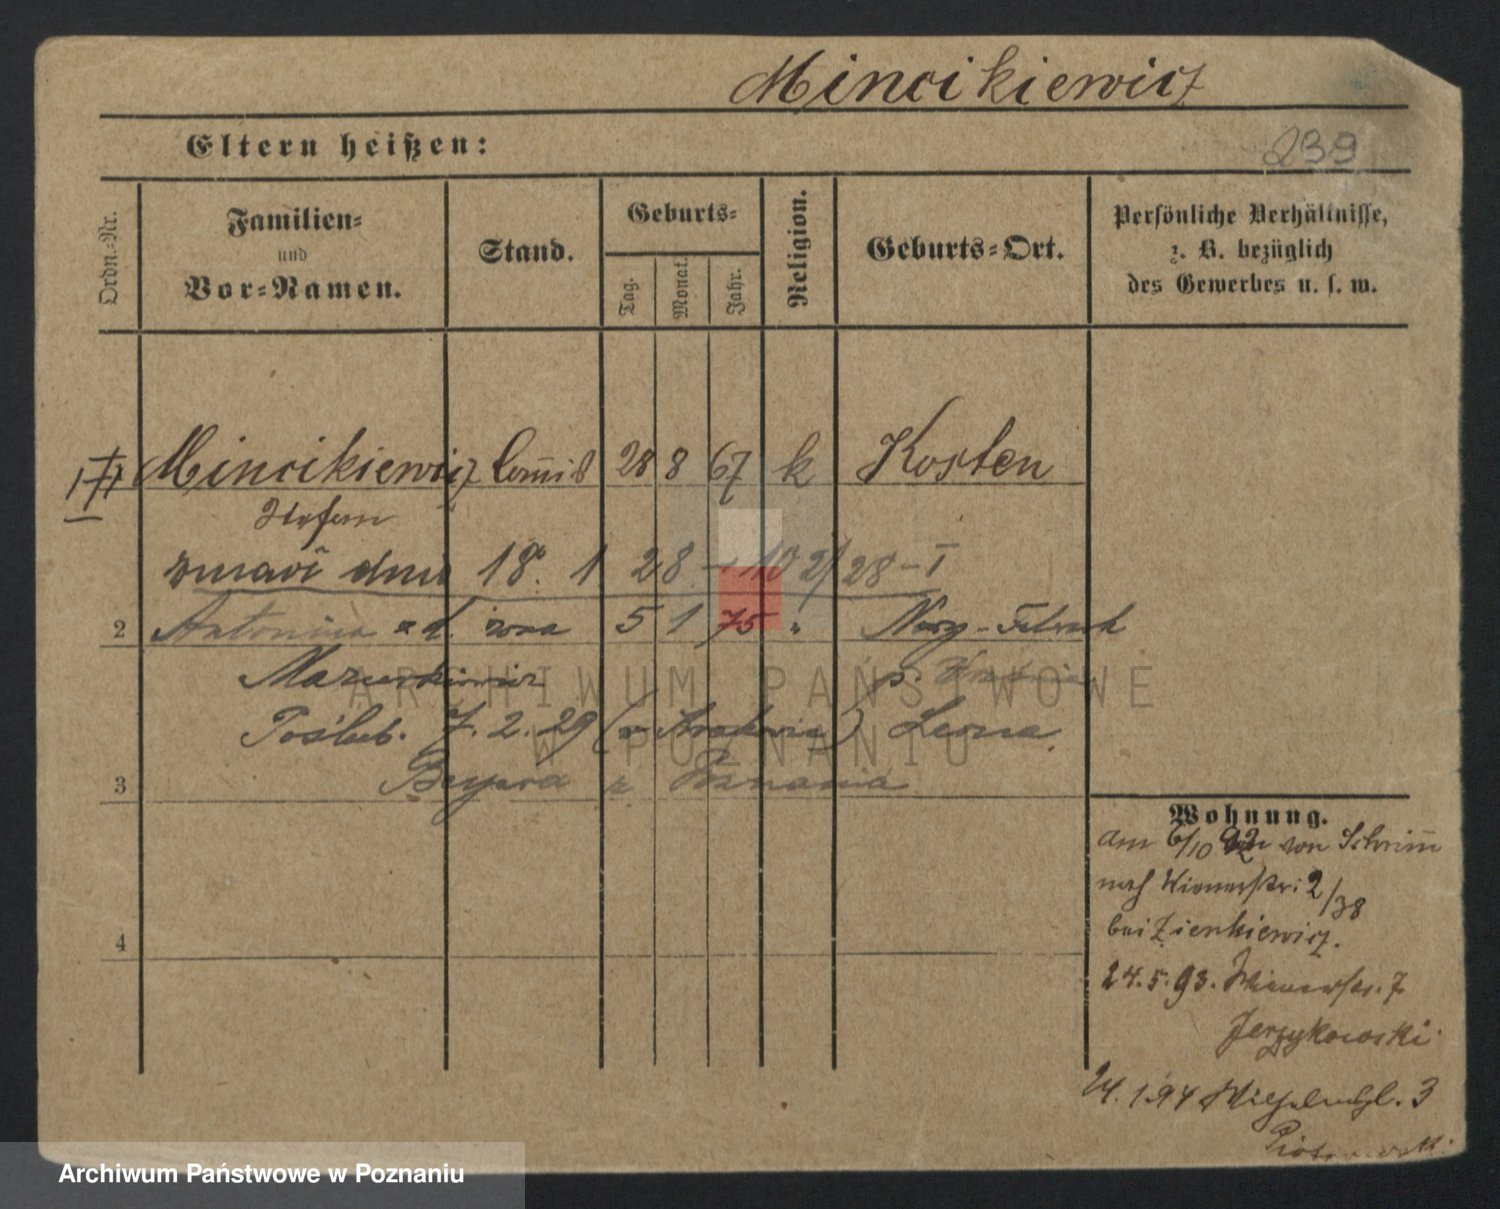 Mincikiewicz
Eltern heißen:
239
Ordn.-Nr.
Familien-
und
Vor-Namen.
Stand.
Geburts-
Tag.
Monat.
Jahr.
Religion.
Geburts-Ort.
Persönliche Verhältnisse,
z. B. bezüglich
des Gewerbes u. s. w.
Mincikiewicz Com̅is 28 8 67 k Kosten
Stefan
dnia 18. 1 28 28-I
2 Antonina d. żona 5 1 75 "
Mazurkiewicz p.
Poślub. 7. 2. 29 (w Krakowie)
3 z Poznania
4
Wohnung.
am 6/10 92 von Schrim̅
nach Wienerstr: 2/38
bei Zienkiewicz.
24.5.93. Wienerstr. 7
Jerzykowski
24.1.94 Wilhelmspl. 3
ARCHIWUM PAŃSTWOWE
W POZNANIU
Archiwum Państwowe w Poznaniu